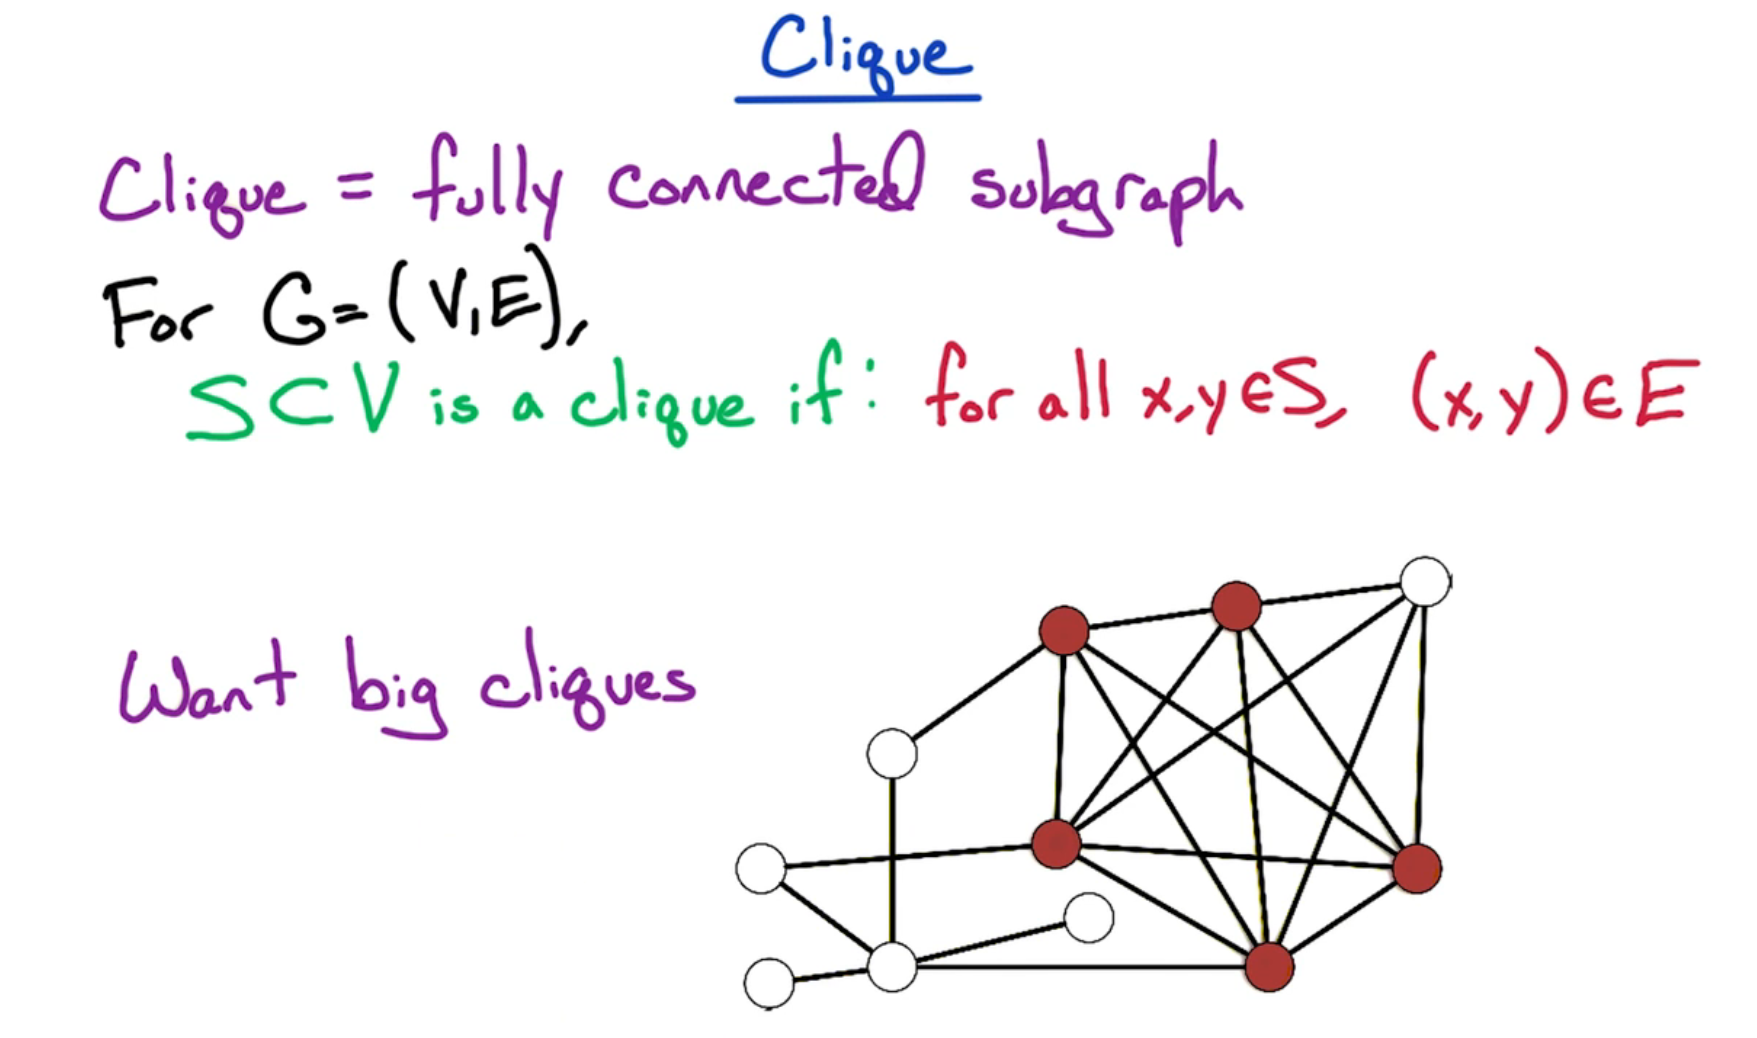 Clique
Clique = fully connected subgraph
For G=(V,E),
S⊂V is a clique if: for all x,y∈S, (x,y)∈E
Want big cliques